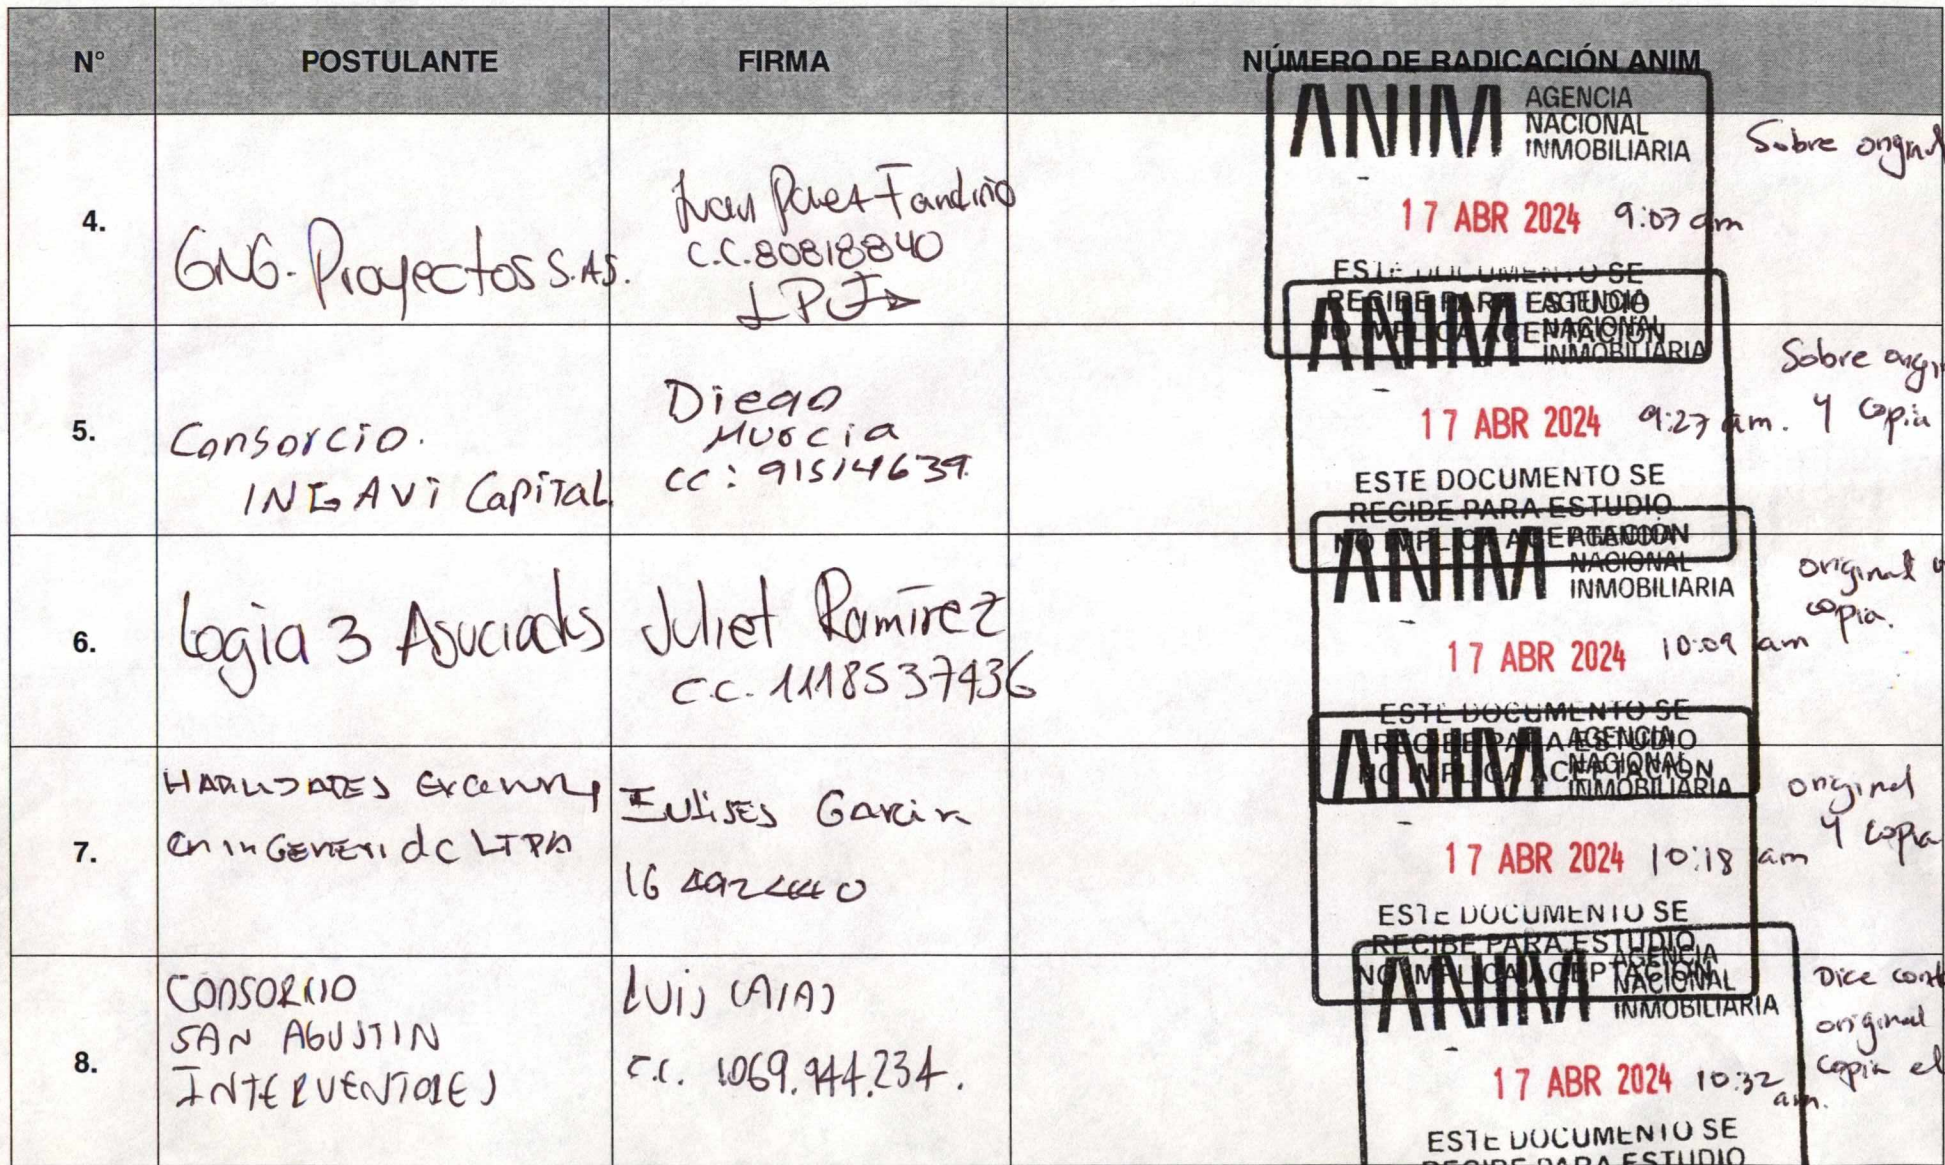 N° POSTULANTE FIRMA NÚMERO DE RADICACIÓN ANIM
4.
GNG-Proyectos S.A.S.
Juan
C.C.80818840
ANIM AGENCIA
NACIONAL
INMOBILIARIA
17 ABR 2024 9:07 am
ESTE DOCUMENTO SE
RECIBE PARA ESTUDIO
NO IMPLICA ACEPTACIÓN
Sobre original
5.
Consorcio.
INGAVI CapiTAL
Diego
Murcia
CC: 91514639
ANIM AGENCIA
NACIONAL
INMOBILIARIA
17 ABR 2024 9:27 am.
ESTE DOCUMENTO SE
RECIBE PARA ESTUDIO
NO IMPLICA ACEPTACIÓN
Sobre
Y copia
6.
Logia 3 Asociados
Juliet Ramírez
C.C. 1118537436
ANIM AGENCIA
NACIONAL
INMOBILIARIA
17 ABR 2024 10:09 am
ESTE DOCUMENTO SE
RECIBE PARA ESTUDIO
NO IMPLICA ACEPTACIÓN
original
copia.
7.
LTDA
Garcia
16
ANIM AGENCIA
NACIONAL
INMOBILIARIA
17 ABR 2024 10:18 am
ESTE DOCUMENTO SE
RECIBE PARA ESTUDIO
NO IMPLICA ACEPTACIÓN
original
Y copia
8.
CONSORCIO
SAN AGUSTIN
INTERVENTORES
LUIS
C.C. 1069.944.234.
ANIM AGENCIA
NACIONAL
INMOBILIARIA
17 ABR 2024 10:32
am.
ESTE DOCUMENTO SE
RECIBE PARA ESTUDIO
Dice
original
copia el